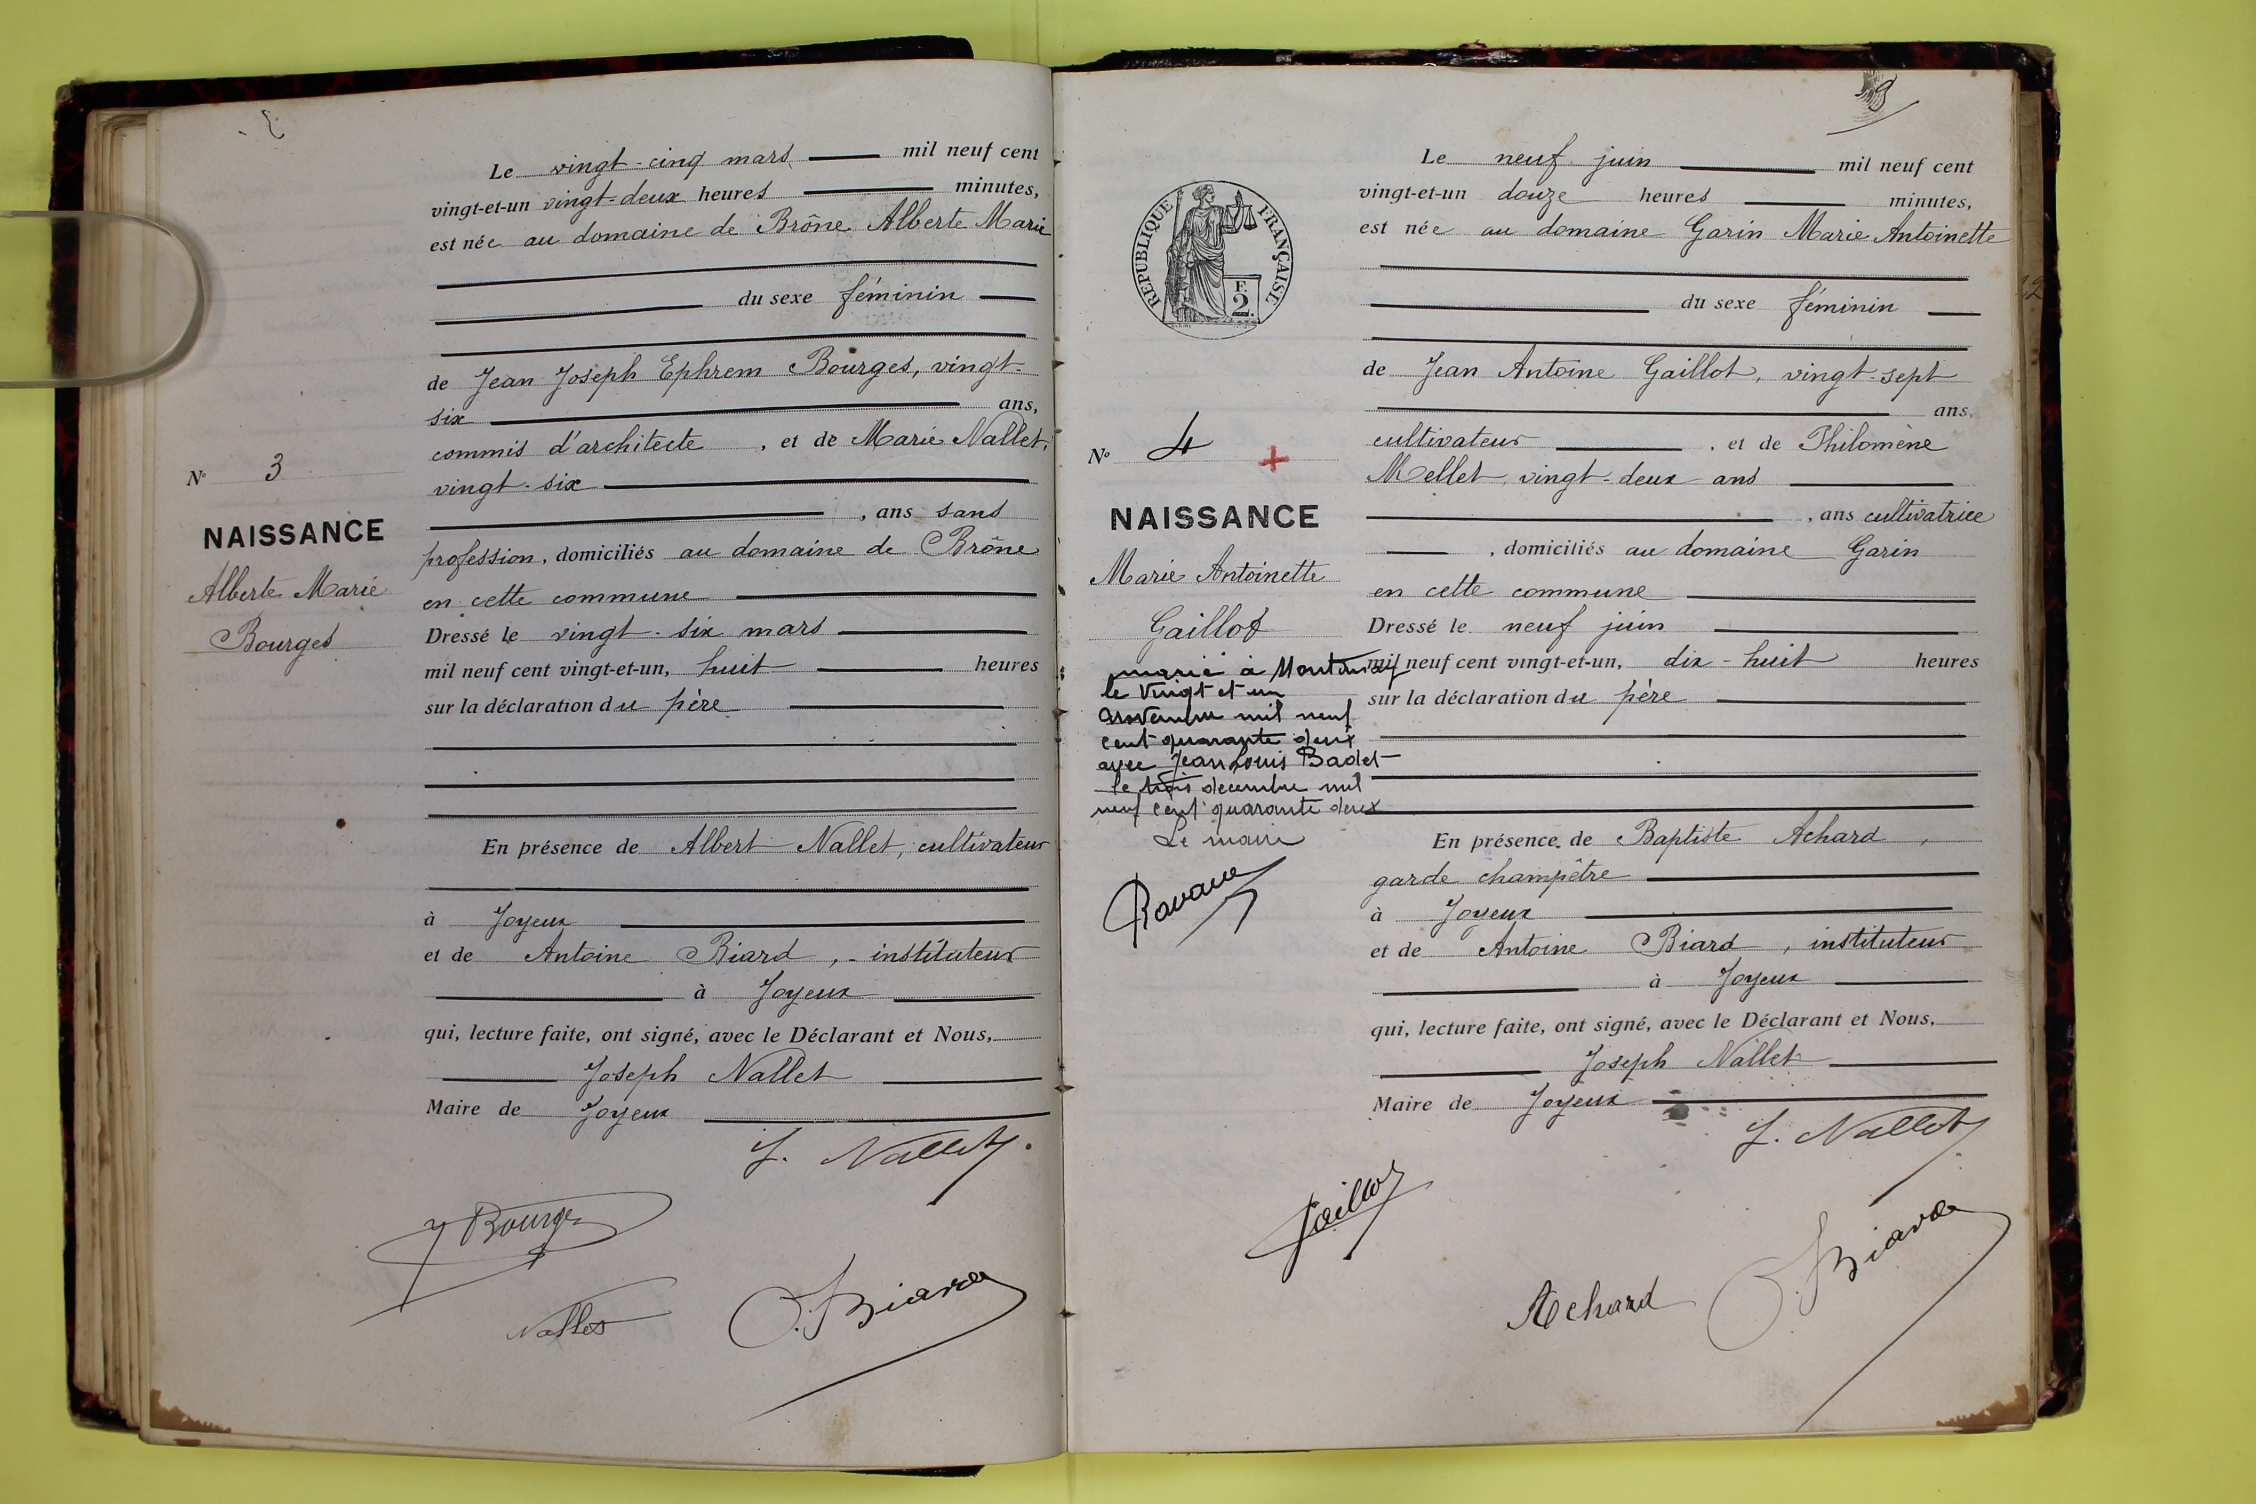 Le vingt-cinq mars mil neuf cent
vingt-et-un vingt-deux heures minutes,
est née au domaine de Brône Alberte Marie
du sexe féminin
de Jean Joseph Ephrem Bourges, vingt-
six ans,
commis d'architecte, et de Marie Nallet,
vingt-six
, ans sans
profession, domiciliés au domaine de Brône
en cette commune
Dressé le vingt-six mars
mil neuf cent vingt-et-un, huit heures
sur la déclaration du père
En présence de Albert Nallet, cultivateur
à Joyeux
et de Antoine Biard, instituteur
à Joyeux
qui, lecture faite, ont signé, avec le Déclarant et Nous,
Joseph Nallet
Maire de Joyeux
J. Nallet
J Bourges
Nallet
A. Biard
No 3
NAISSANCE
Alberte Marie
Bourges
9
RÉPUBLIQUE FRANÇAISE
F.
2.
No 4
NAISSANCE
Marie Antoinette
Gaillot
marié à Montanay
le vingt et un
novembre mil neuf
cent quarante deux
avec Jean Louis Badet
le trois decembre mil
neuf cent quarante deux
Le maire
Le neuf juin mil neuf cent
vingt-et-un douze heures minutes,
est née au domaine Garin Marie Antoinette
du sexe féminin
de Jean Antoine Gaillot, vingt-sept
ans,
cultivateur, et de Philomène
Mellet, vingt-deux ans
, ans cultivatrice
, domiciliés au domaine Garin
en cette commune
Dressé le neuf juin
mil neuf cent vingt-et-un, dix-huit heures
sur la déclaration du père
En présence de Baptiste Achard,
garde champêtre
à Joyeux
et de Antoine Biard, instituteur
à Joyeux
qui, lecture faite, ont signé, avec le Déclarant et Nous,
Joseph Nallet
Maire de Joyeux
J. Nallet
Gaillot
Achard
A. Biard